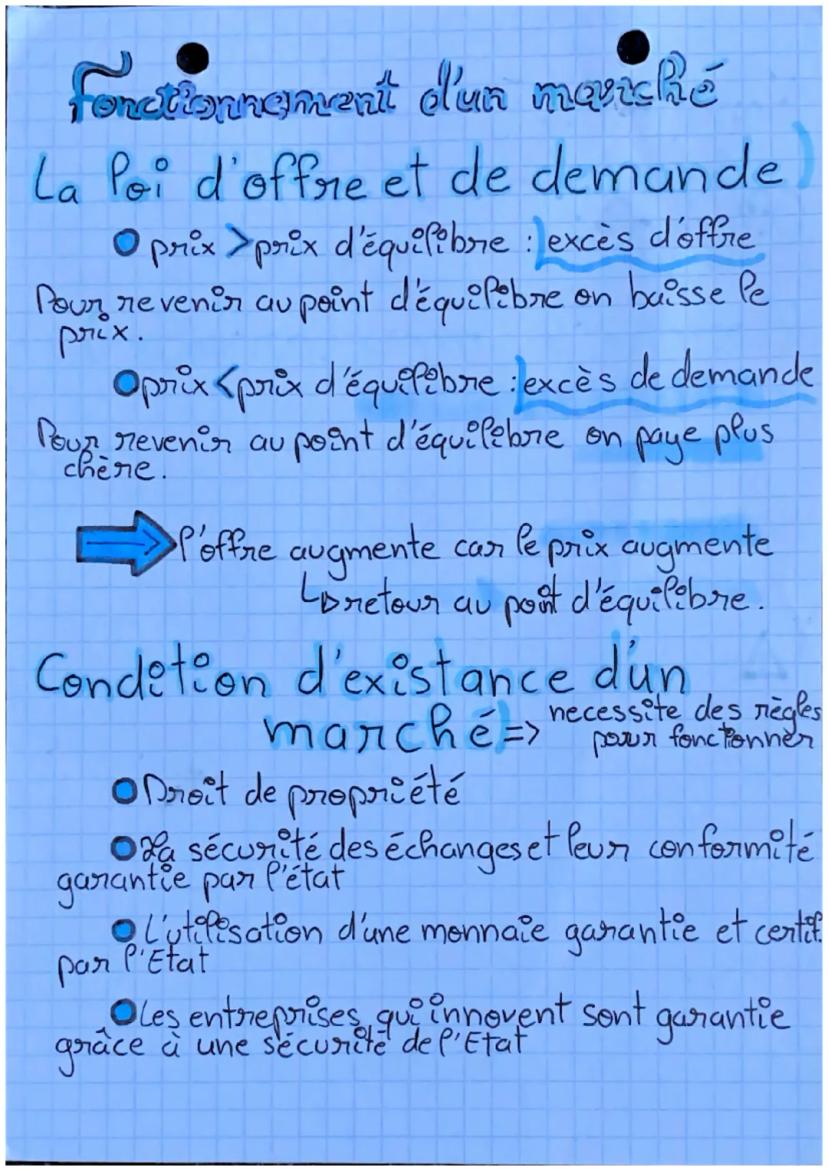 Fonctionnement d'un marché
La loi d'offre et de demande)
prix > prix d'équilibre : excès d'offre
Pour revenir au point d'équilibre on baisse le
prix.
prix < prix d'équilibre : excès de demande
Pour revenir au point d'équilibre on paye plus
chère.
l'offre augmente car le prix augmente
↳ retour au point d'équilibre.
Condition d'existance d'un
marché) => necessite des règles
pour fonctionner
Droit de propriété
La sécurité des échanges et leur conformité
garantie par l'état
L'utilisation d'une monnaie garantie et certif.
par l'Etat
Les entreprises qui innovent sont garantie
grâce à une sécurité de l'Etat